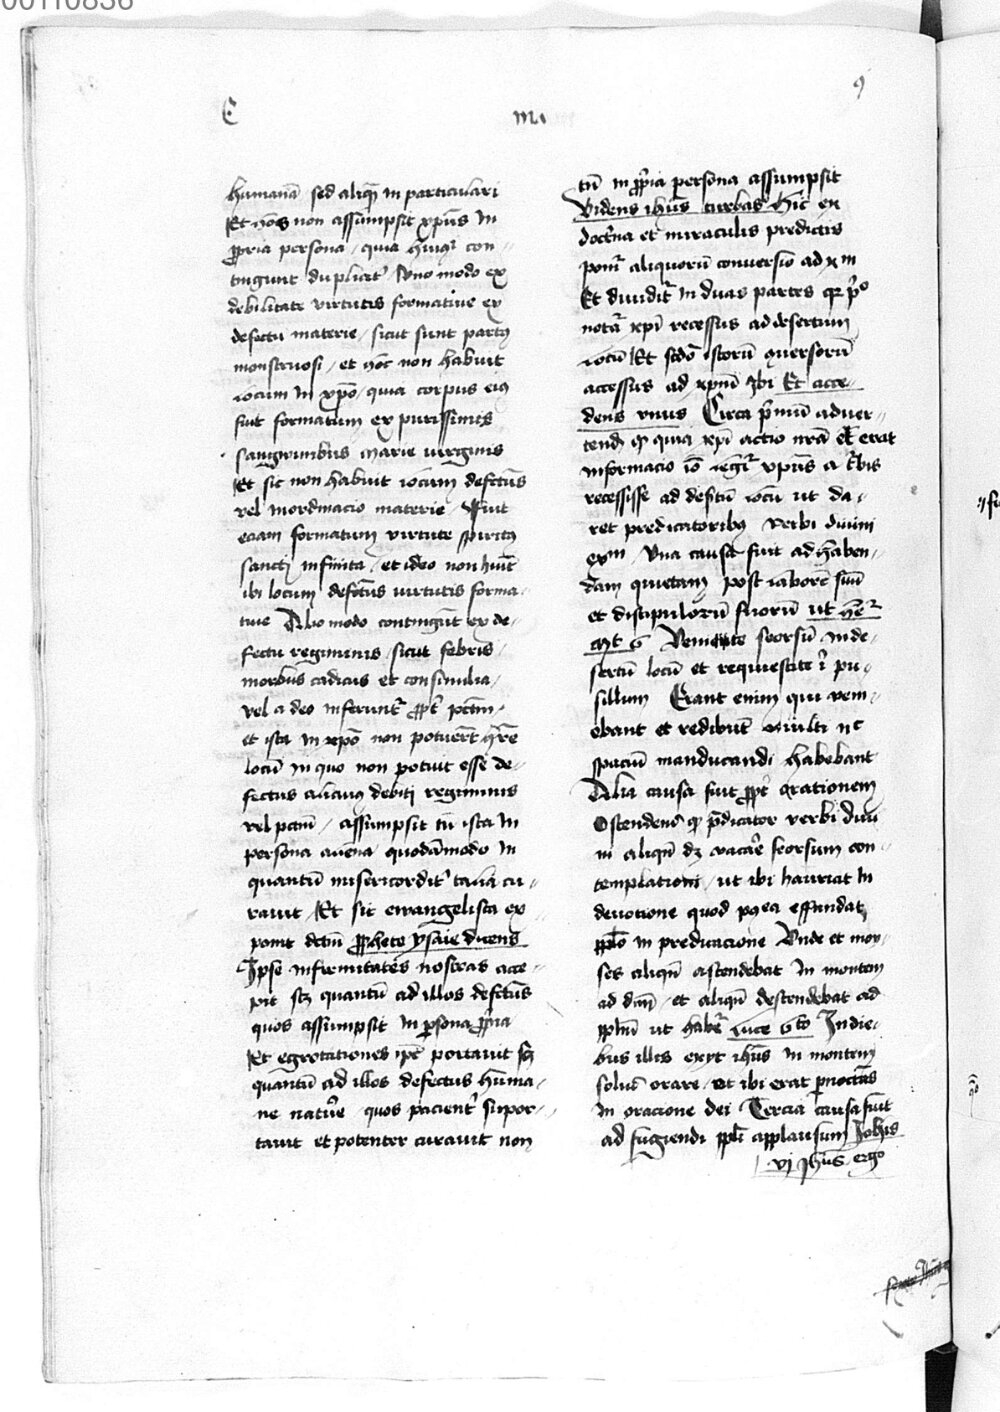 00110836
C
m.
9
humanā sed aliqȝ in particulari
Et hos non assumpsit xp̄us In
ꝓpria persona / quia huiꝰ con-
tingunt duplicit' / Uno modo ex
debilitate virtutis formatiue ex
defectu materie / sicut sunt partꝰ
monstruosi / et hoc non habuit
locum In xp̄o / quia corpus eiꝰ
fuit formatum ex purissimis
sanguinibus Marie virginis
Et sic non habuit locum defectus
vel inordinacio materie / Fuit
eciam formatum virtute spiritꝰ
sancti infinita / et ideo non hūit
ibi locum defectus virtutis forma-
tiue Alio modo contingūt ex de-
fectu regiminis / sicut febris /
morbus caducus et consimilia /
vel a deo inferunt' ꝓpt' pctm̄ /
et ista in xp̄o non potuer̄t h're
locū in quo non potuit esse de-
fectus alicuiꝰ debiti regiminis
vel pctm̄ / assumpsit tn̄ ista In
persona aliena quodāmodo In
quantū misericordit' talia cu-
rauit / Et sic ewangelista ex
ponit dictū ꝓphete ysaie dicens
Ipse infirmitates nostras acce-
pit scȝ quantū ad illos defectus
quos assumpsit In ꝑsona ꝓpria
Et egrotationes ip̄e portauit sȝ
quantū ad illos defectus huma-
ne nature quos pacient' supor-
tauit et potenter curauit non
tn̄ in ꝓpria persona assumpsit
Videns ihūs turbas Hic ex
doctr̄na et miraculis predictis
ponit' aliquorū conuersio ad xm
Et diuidit' In duas partes qȝ p'o
notat' xp̄i recessus ad desertum
locū Et scd̄o istorū ꝯuersorū
accessus ad xpm̄ Ibi Et acce-
dens vnus Circa p'mū aduer-
tend' qꝫ quia xp̄i actio nrā erat
informacio iō legit' xp̄us a t'bis
recessisse ad desertū locū ut da-
ret predicatoribus verbi diuini
exm Una causa fuit ad haben-
dam quietam post laborē suū
et discipulorū suorū ut het'
Mt 6 Venite seorsū In de-
sertū locū et requiescite ī pu-
sillum Erant enim qui veni-
ebant et redibūt multi nc
spaciū manducandi habebant
Alia causa fuit ꝓpt' orationem
Ostendens qꝫ p̄dicator verbi diui
ni aliqn̄ dȝ vacare seorsum con-
templationi / ut ibi hauriat In
deuotione quod postea effundat
pplo In predicacione Unde et moy-
ses aliqn̄ ascendebat In montem
ad dm̄ / et aliqn̄ descendebat ad
pplm̄ ut habet' luce 6to In die-
bus illis exyt ihūs In montem
soluꝰ orare / et ibi erat ꝑnoctās
In oracione dei Tercia causa fuit
ad fugiendi ppli applausum Johīs
vj Ihūs ergo